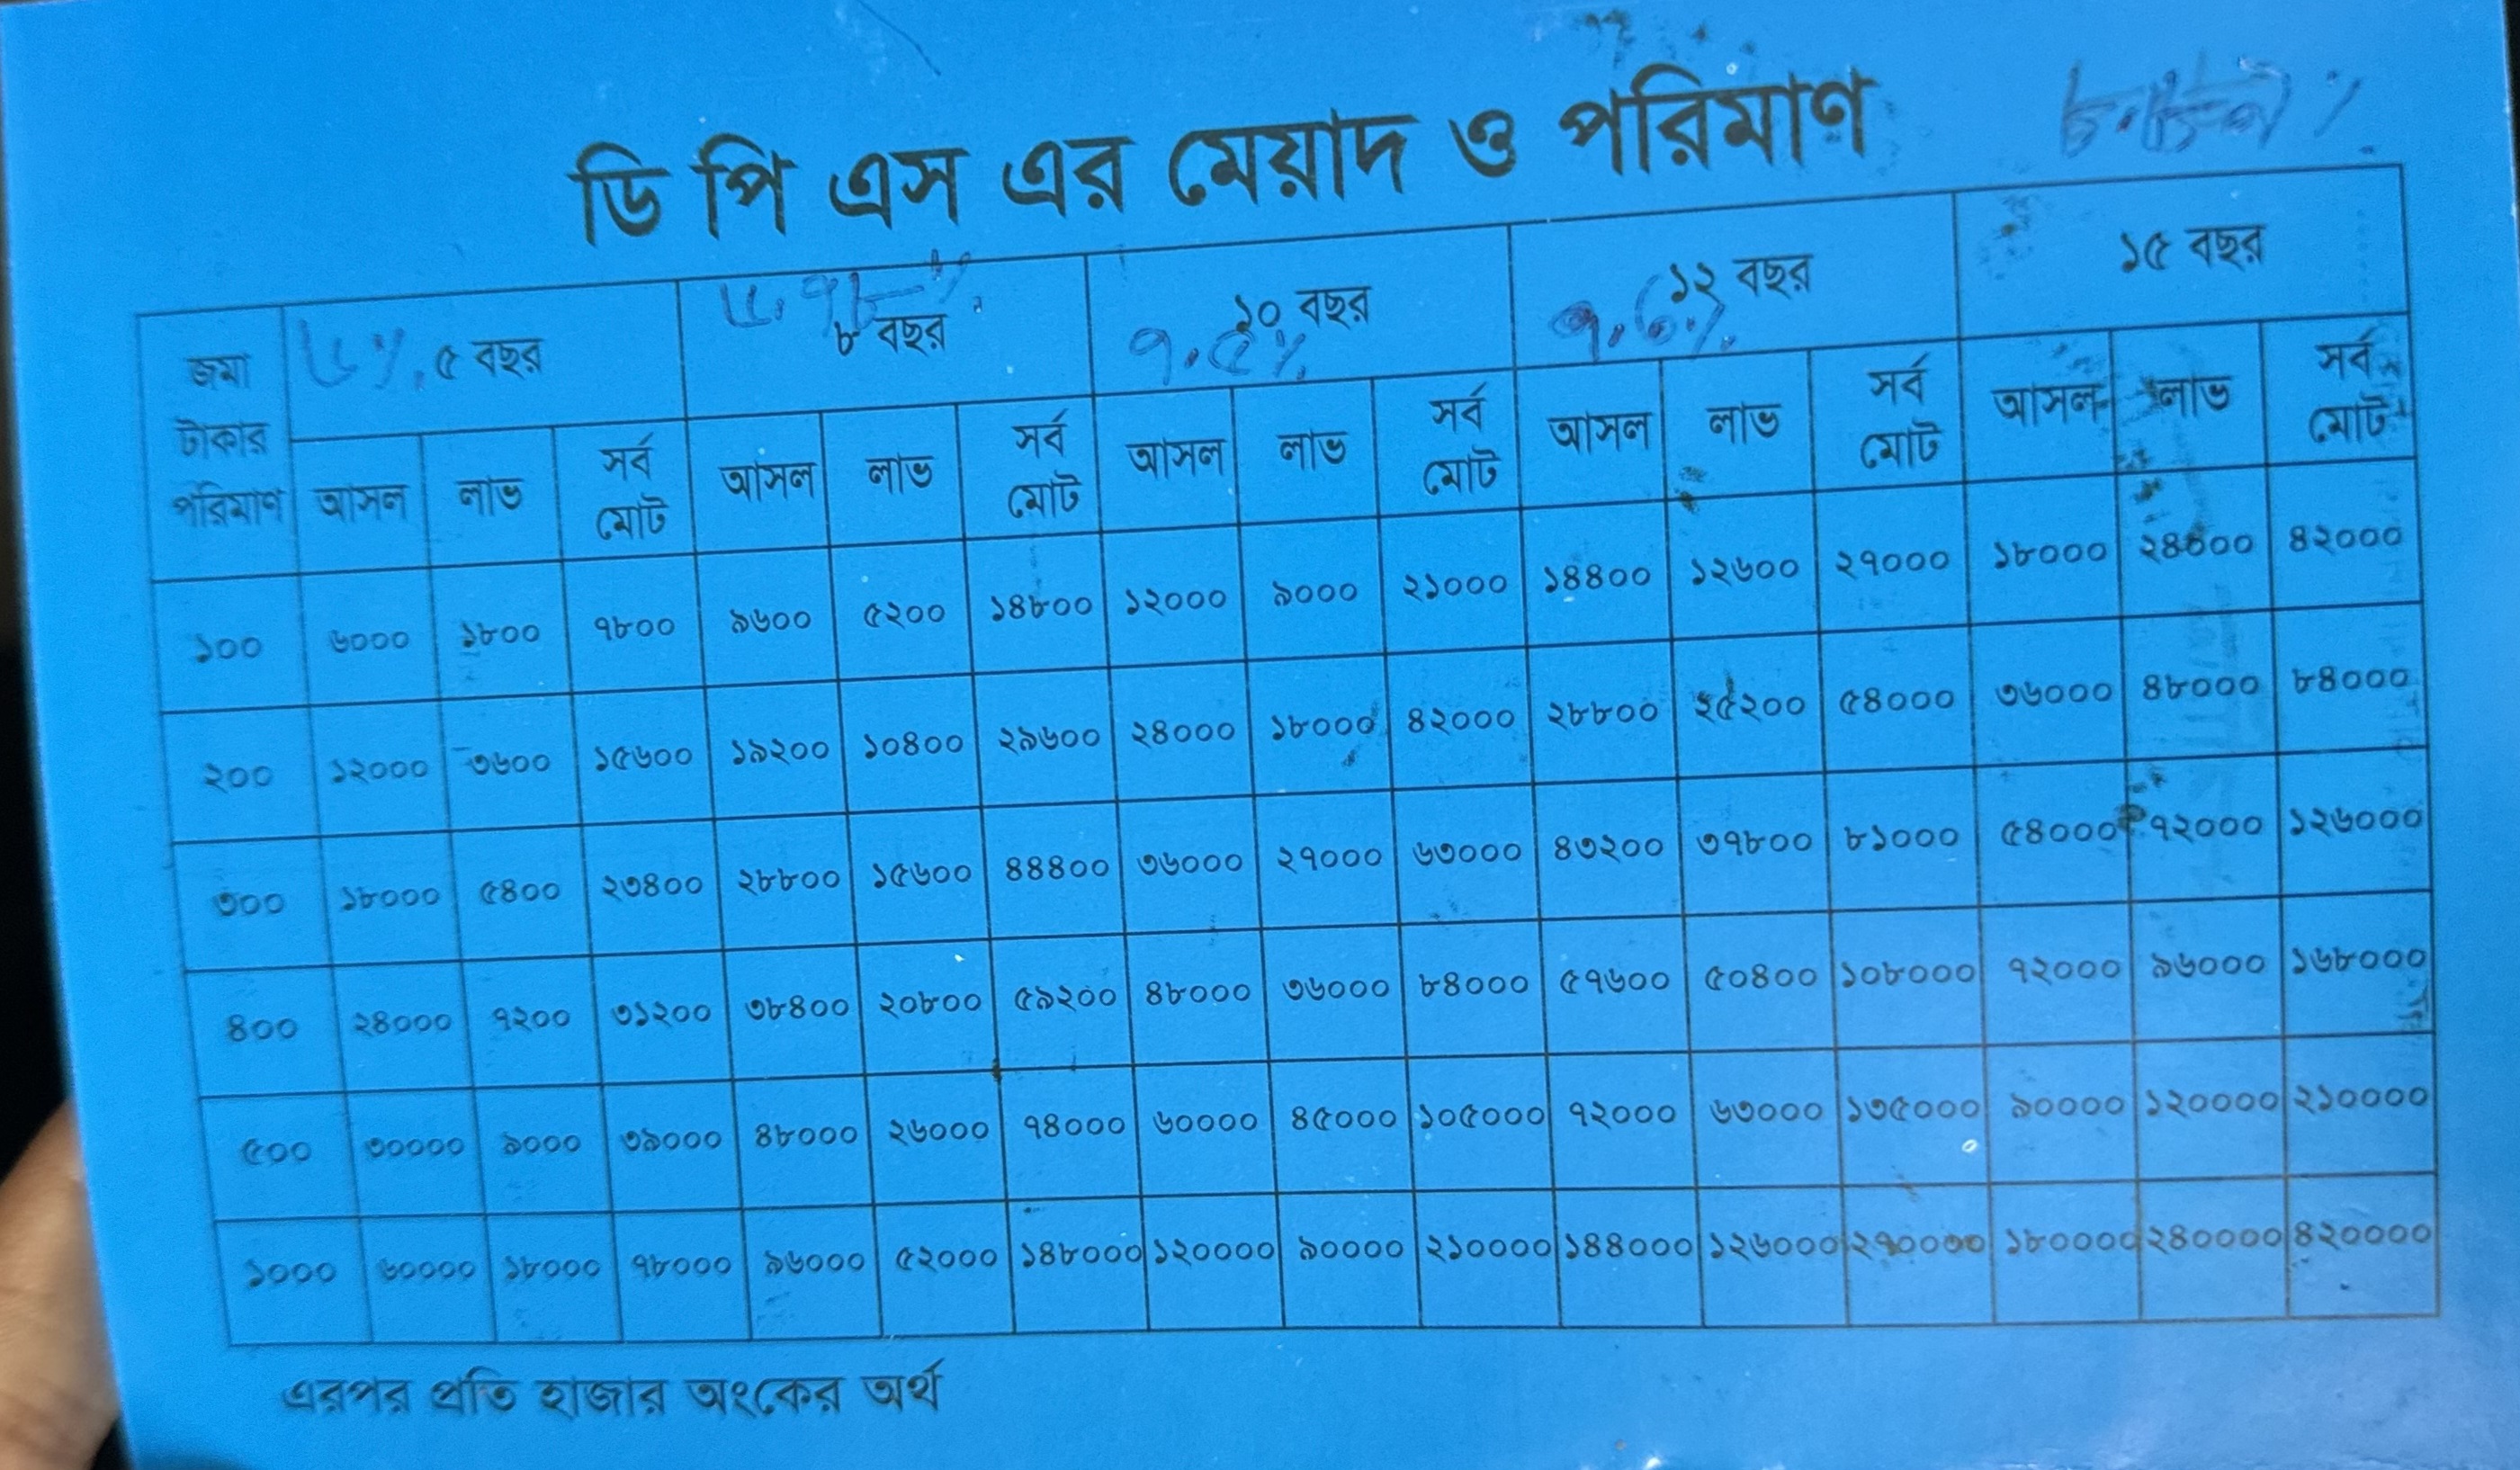 ডি পি এস এর মেয়াদ ও পরিমাণ
জমা টাকার পরিমাণ ৬%. ৫ বছর ৬.৭৮% ৮ বছর ৭.৫% ১০ বছর ৭.৬% ১২ বছর ১৫ বছর
আসল লাভ সর্ব মোট আসল লাভ সর্ব মোট আসল লাভ সর্ব মোট আসল লাভ সর্ব মোট আসল লাভ সর্ব মোট
১০০ ৬০০০ ১৮০০ ৭৮০০ ৯৬০০ ৫২০০ ১৪৮০০ ১২০০০ ৯০০০ ২১০০০ ১৪৪০০ ১২৬০০ ২৭০০০ ১৮০০০ ২৪০০০ ৪২০০০
২০০ ১২০০০ ৩৬০০ ১৫৬০০ ১৯২০০ ১০৪০০ ২৯৬০০ ২৪০০০ ১৮০০০ ৪২০০০ ২৮৮০০ ২৫২০০ ৫৪০০০ ৩৬০০০ ৪৮০০০ ৮৪০০০
৩০০ ১৮০০০ ৫৪০০ ২৩৪০০ ২৮৮০০ ১৫৬০০ ৪৪৪০০ ৩৬০০০ ২৭০০০ ৬৩০০০ ৪৩২০০ ৩৭৮০০ ৮১০০০ ৫৪০০০ ৭২০০০ ১২৬০০০
৪০০ ২৪০০০ ৭২০০ ৩১২০০ ৩৮৪০০ ২০৮০০ ৫৯২০০ ৪৮০০০ ৩৬০০০ ৮৪০০০ ৫৭৬০০ ৫০৪০০ ১০৮০০০ ৭২০০০ ৯৬০০০ ১৬৮০০০
৫০০ ৩০০০০ ৯০০০ ৩৯০০০ ৪৮০০০ ২৬০০০ ৭৪০০০ ৬০০০০ ৪৫০০০ ১০৫০০০ ৭২০০০ ৬৩০০০ ১৩৫০০০ ৯০০০০ ১২০০০০ ২১০০০০
১০০০ ৬০০০০ ১৮০০০ ৭৮০০০ ৯৬০০০ ৫২০০০ ১৪৮০০০ ১২০০০০ ৯০০০০ ২১০০০০ ১৪৪০০০ ১২৬০০০ ২৭০০০০ ১৮০০০০ ২৪০০০০ ৪২০০০০
এরপর প্রতি হাজার অংকের অর্থ